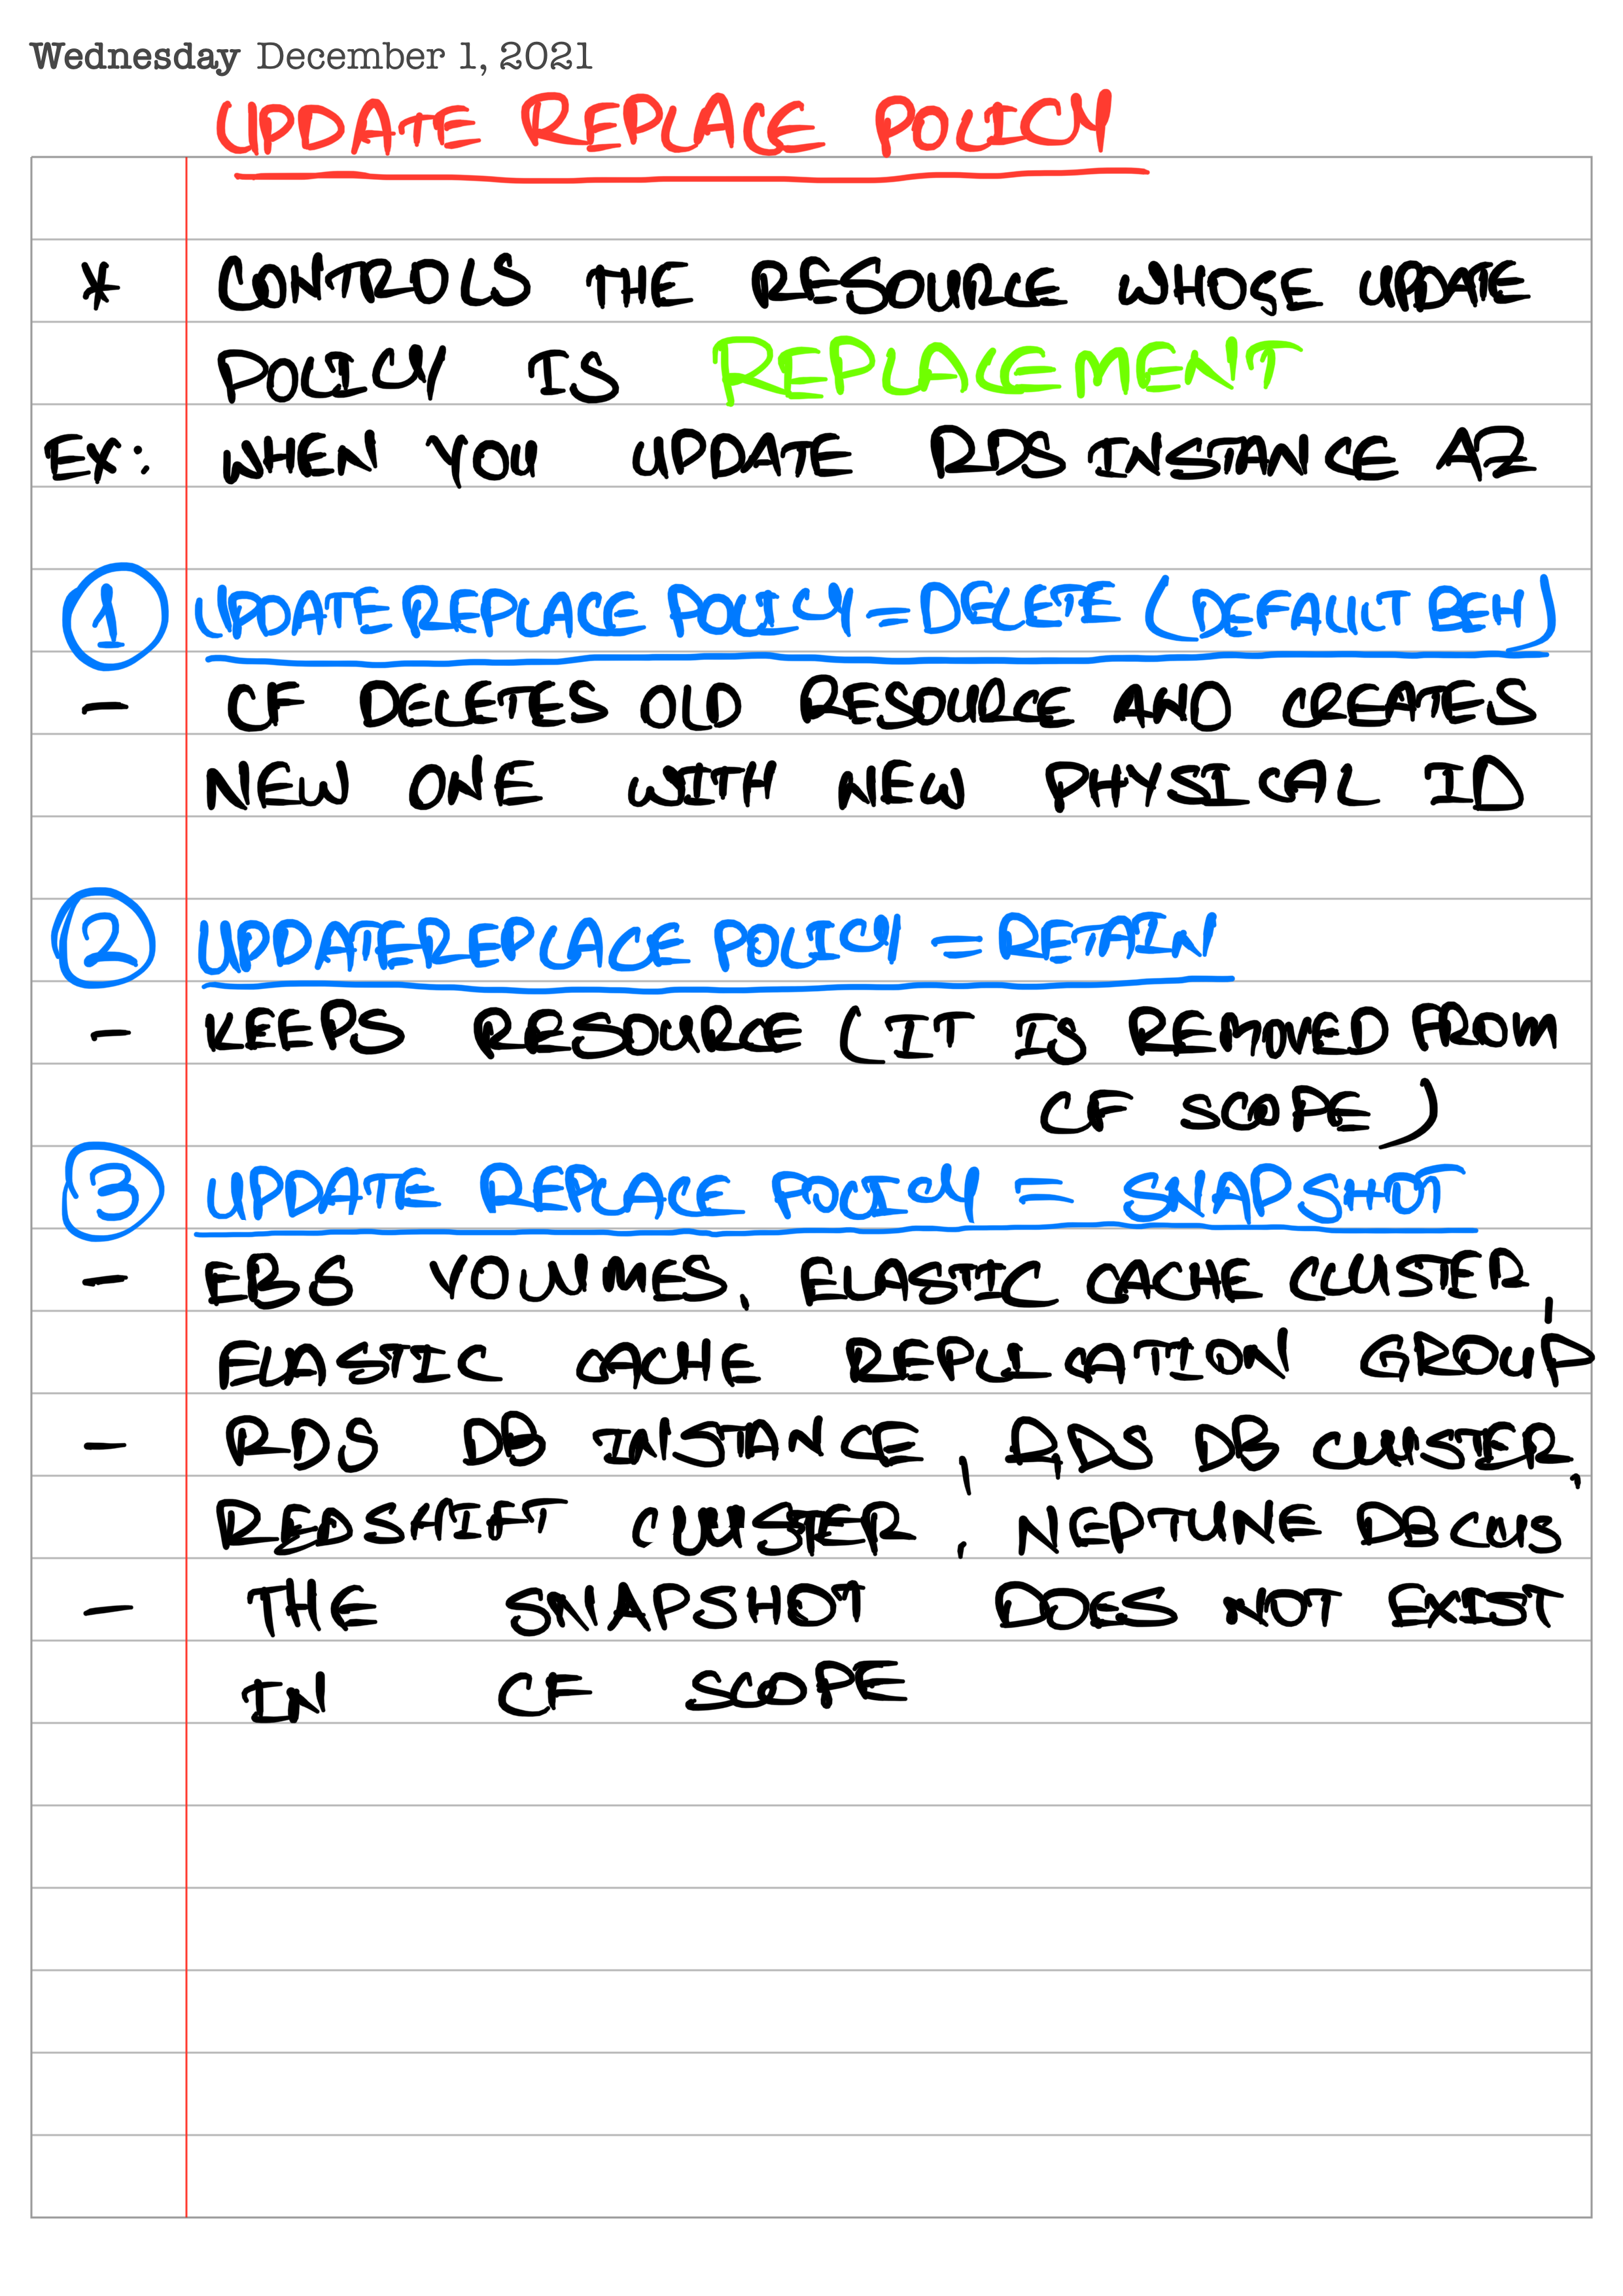 Wednesday December 1, 2021
UPDATE REPLACE POLICY
* CONTROLS THE RESOURCE WHOSE UPDATE
POLICY IS REPLACEMENT
EX: WHEN YOU UPDATE RDS INSTANCE AZ
1 UPDATEREPLACE POLICY = DELETE (DEFAULT BEH)
- CF DELETES OLD RESOURCE AND CREATES
NEW ONE WITH NEW PHYSICAL ID
2 UPDATEREPLACE POLICY = RETAIN
- KEEPS RESOURCE (IT IS REMOVED FROM
CF SCOPE)
3 UPDATE REPLACE POLICY = SNAPSHOT
- EBS VOLUMES, ELASTIC CACHE CLUSTER,
ELASTIC CACHE REPLICATION GROUP
- RDS DB INSTANCE, RDS DB CLUSTER,
REDSHIFT CLUSTER, NEPTUNE DB CLUS
- THE SNAPSHOT DOES NOT EXIST
IN CF SCOPE